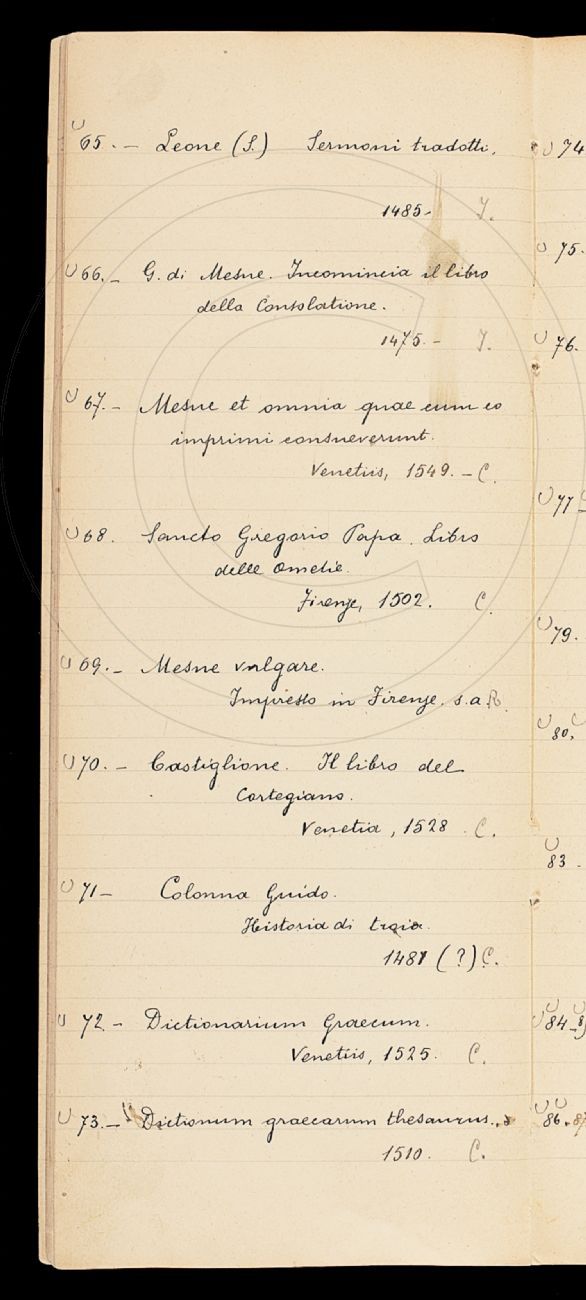 65. — Leone (S.) Sermoni tradotti.
1485- I.
66. — G. di Mesue. Incomincia il libro
della Consolatione.
1475. - I.
67. — Mesue et omnia quae cum eo
imprimi consueverunt.
Venetiis, 1549. — C.
68. Sancto Gregorio Papa. Libro
delle Omelie.
Firenze, 1502. C.
69. — Mesue vulgare.
Impresso in Firenze. s.a R.
70. — Castiglione. Il libro del
Cortegiano.
Venetia, 1528. C.
71 — Colonna Guido.
Historia di troia.
1481 (?) C.
72 — Dictionarium Graecum.
Venetiis, 1525. C.
73. — Dictionum graecarum thesaurus.
1510. C.
74
75.
76.
77
79.
80.
83.
84-8
86.87